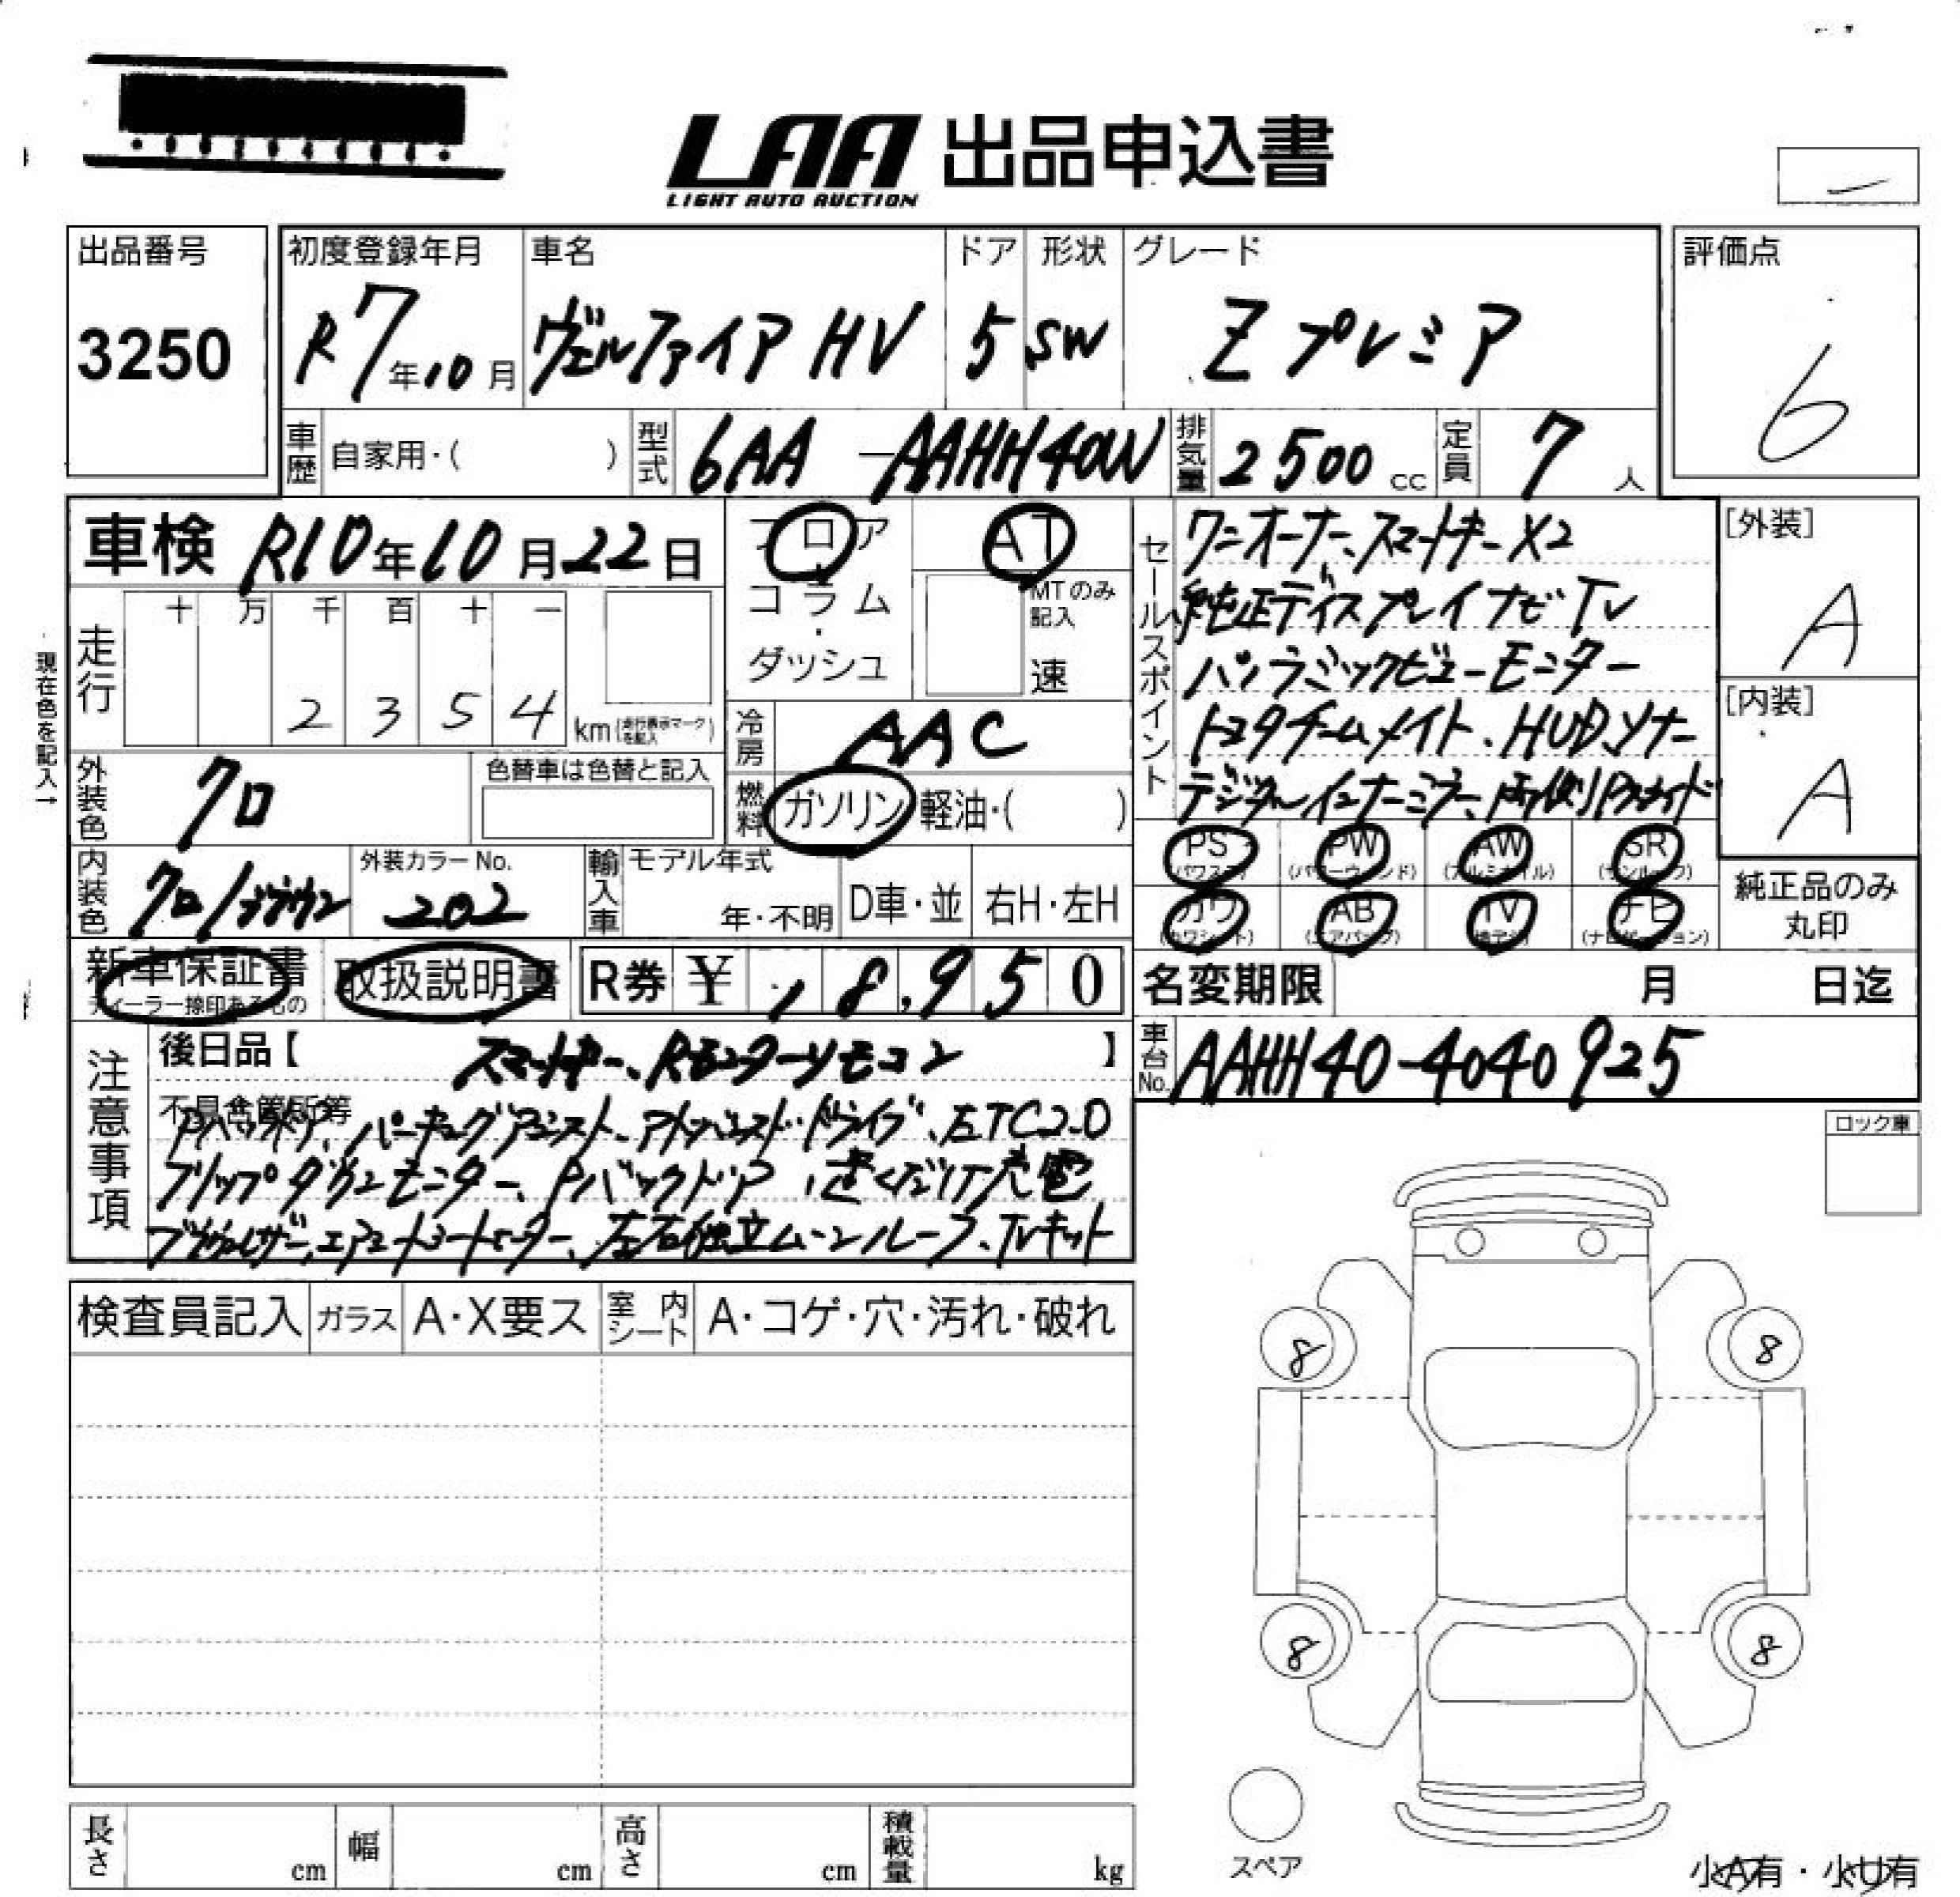 LAA 出品申込書
LIGHT AUTO AUCTION
出品番号
3250
初度登録年月
R7年10月
車名
ヴェルファイア HV
ドア
5
形状
SW
グレード
Z プレミア
評価点
6
車歴
自家用・( )
型式
6AA-AAHH40W
排気量
2500 cc
定員
7 人
車検 R10年10月22日
フロア
コラム
・
ダッシュ
AT
MTのみ
記入
速
セールスポイント
ワンオーナー、スマートキーX2
純正ディスプレイナビTV
パノラミックビューモニター
トヨタチームメイト、HUD、ソナー
デジタルインナーミラー、両側Pスライド
[外装]
A
[内装]
A
現在色を記入→
走行
十 万 千 百 十 一
2 3 5 4
km(走行表示マークを記入)
冷房
AAC
外装色
クロ
色替車は色替と記入
燃料
ガソリン 軽油・( )
内装色
クロ/ブラウン
外装カラーNo.
202
輸入車
モデル年式
年・不明
D車・並
右H・左H
PS (パワステ)
PW (パワーウィンド)
AW (アルミホイル)
SR (サンルーフ)
カワ (カワシート)
AB (エアバック)
TV
ナビ (ナビゲーション)
純正品のみ
丸印
新車保証書
ディーラー捺印あるもの
取扱説明書
R券 ¥ 18,950
名変期限 月 日迄
注意事項
後日品【 スマートキー、Rモニターリモコン 】
車台No.
AAHH40-4040925
不具合箇所等
Pバックドア、パーキングアシスト、アドバンスド・ドライブ、ETC2.0
フリップダウンモニター、Pバックドア、置くだけ充電
ブラウンレザー、エアシートヒーター、左右独立ムーンルーフ、TVキット
ロック車
検査員記入
ガラス
A・X要ス
室内シート
A・コゲ・穴・汚れ・破れ
8
8
8
8
スペア
長さ cm
幅 cm
高さ cm
積載量 kg
小A有・小U有